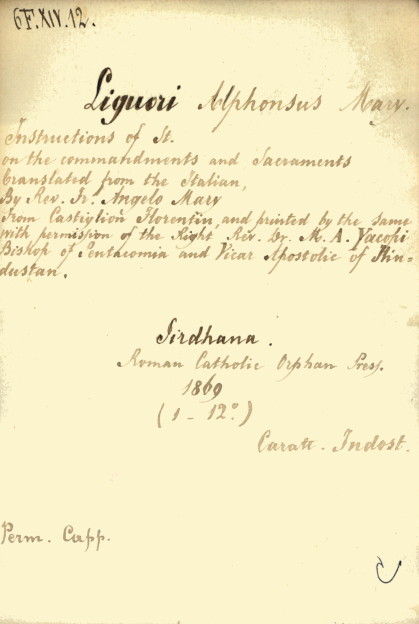 6F.XIV.12.
Liguori Alphonsus Mary.
Instructions of St.
on the commandments and Sacraments
translated from the Italian,
By Rev. Fr. Angelo Mary
From Castiglion Florentin, and printed by the same
with permission of the Right Rev. Dr. M. A. Yacopi
Bishop of Pentacomia and Vicar Apostolic of Hin-
dustan.
Sirdhana.
Roman Catholic Orphan Press.
1869
(1 - 12°)
Caratt. Indost.
Perm. Capp.